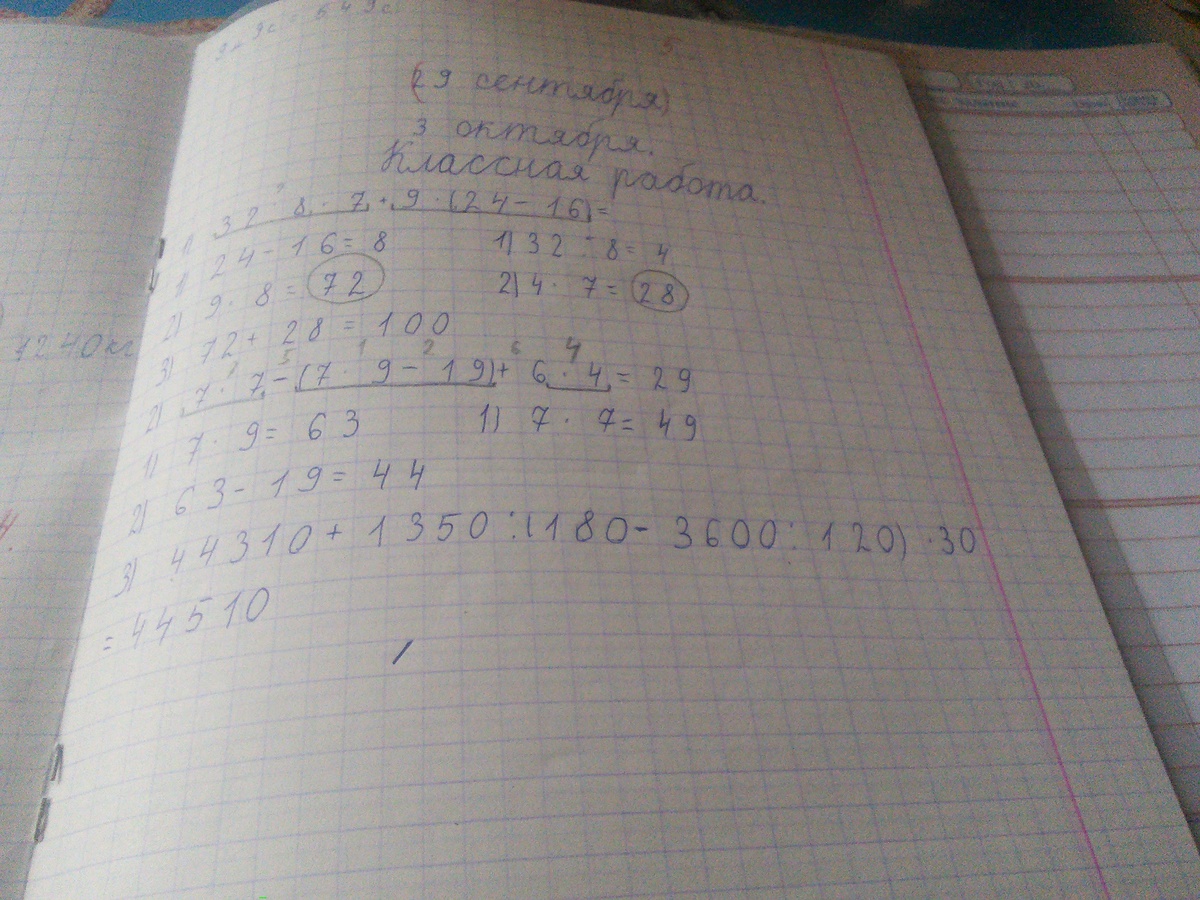 (29 сентября)
3 октября.
Классная работа.
1) 32 : 8 · 7 + 9 · (24 - 16) =
1) 24 - 16 = 8 1) 32 : 8 = 4
2) 9 · 8 = 72 2) 4 · 7 = 28
3) 72 + 28 = 100
2) 7 · 7 - (7 · 9 - 19) + 6 · 4 = 29
1) 7 · 9 = 63 1) 7 · 7 = 49
2) 63 - 19 = 44
3) 44310 + 1350 : (180 - 3600 : 120) · 30
= 44510
7240 кг